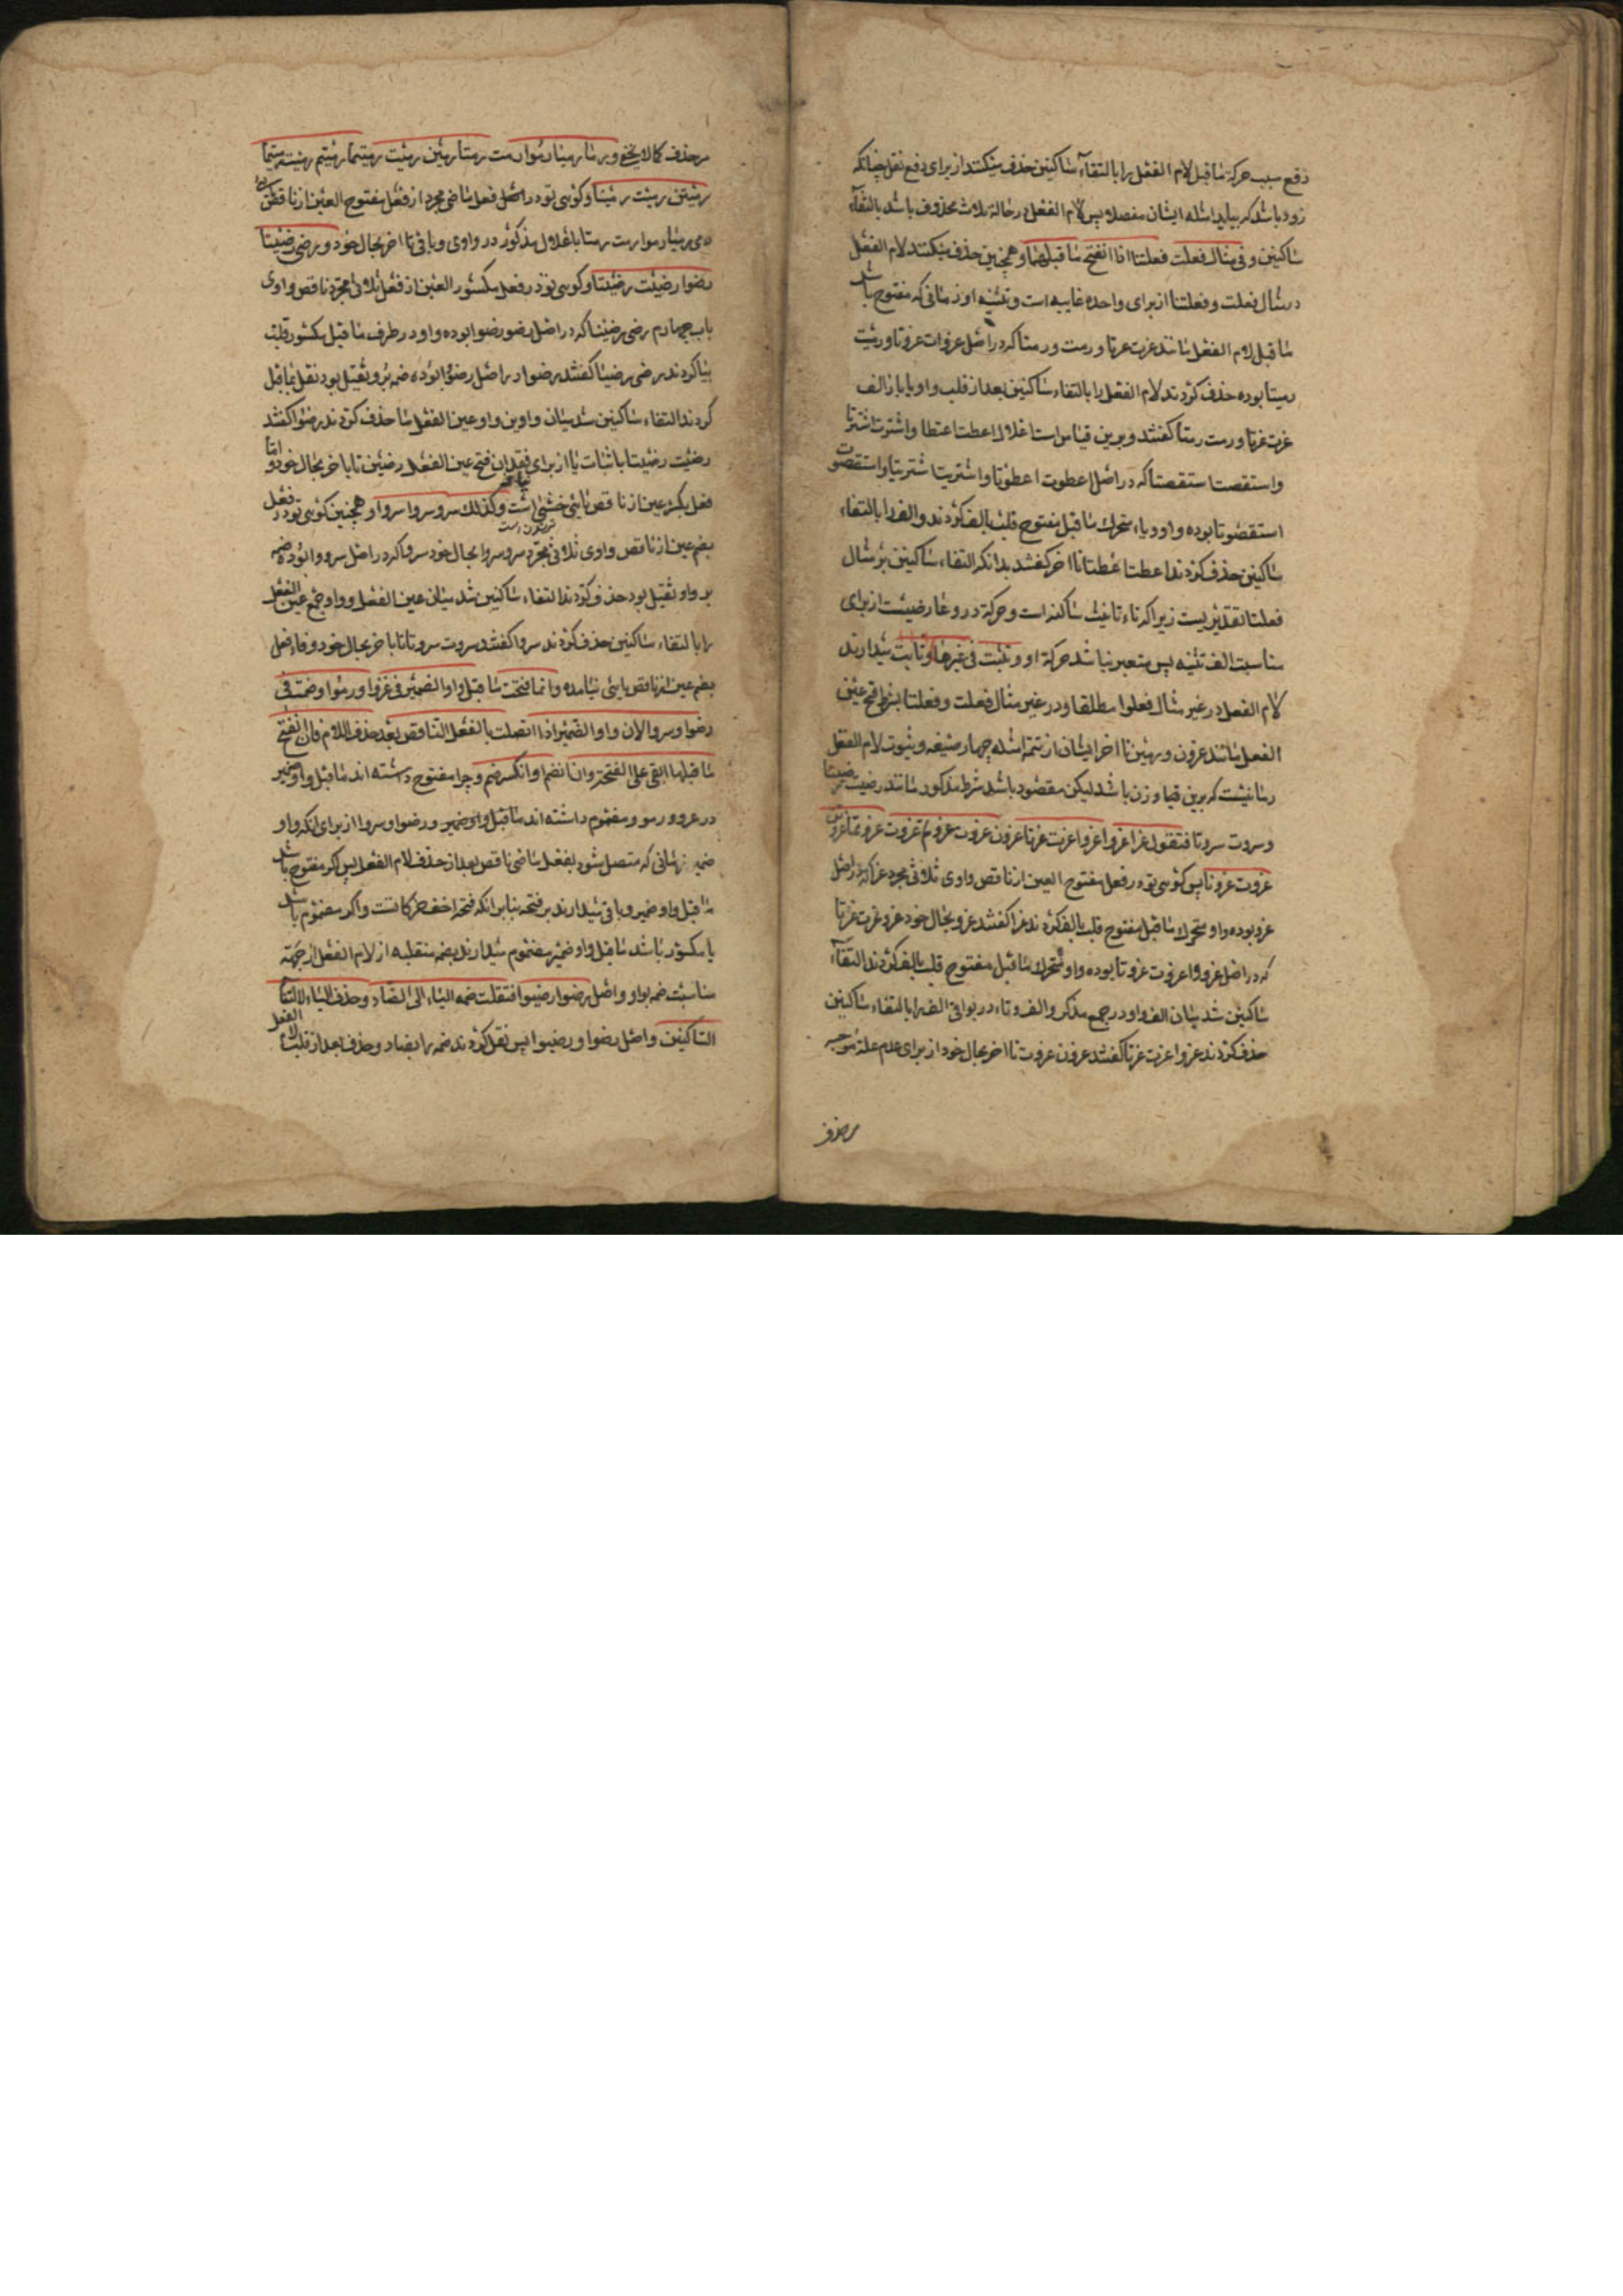 دفع سبب حرکة ماقبل لام الفعل را بالتقاء ساکنین حذف میکنند از برای دفع ثقل چنانکه
زود باشد که بیاید امثله ایشان مفصلا پس لام الفعل در حالة ثلاث محذوف باشد بالتقاء
ساکنین و فی مثال فعلت فعلتا اذا انفتح ماقبلها و همچنین حذف میکنند لام الفعل
در مثال فعلت و فعلتا از برای واحده غایبه است و تثنیه او زمانی که مفتوح باشد
ماقبل لام الفعل مانند غزت غزتا و رمت و رمتا که در اصل غزوات غزوتا و رمیت
رمیتا بوده حذف کردند لام الفعل را بالتقاء ساکنین بعد از قلب واو یا با الف
غزت غزتا و رمت رمتا گفتند و برین قیاس است اعلال اعطت اعطتا و اشترت اشترتا
و استقصت استقصتا که در اصل اعطوت اعطوتا و اشتریت اشتریتا و استقصوت
استقصوتا بوده واو و یاء متحرک ماقبل مفتوح قلب بالف کردند و الف را بالتقاء
ساکنین حذف کردند اعطت اعطتا تا آخر گفتند بدانکه التقاء ساکنین بر مثال
فعلتا تقدیریست زیرا که تاء تانیث ساکنه است و حرکة در و عارضیست از برای
مناسبت الف تثنیه پس معتبر نباشد حرکة او و تثبت فی غیرها و ثابت میدارند
لام الفعل در غیر مثال فعلوا مطلقا و در غیر مثال فعلت و فعلتا بشرط فتح عین
الفعل مانند غزون و رمین تا آخر ایشان از تتمه امثله چهار صیغه و ثبوت لام الفعل
و سروت سروتا فتقول غزا غزوا غزوا غزت غزتا غزون غزوت غزوتما غزوتم غزوت غزوتما غزوتن
غزوت غزونا پس کوئی تو در فعل مفتوح العین از ناقص واوی ثلاثی مجرد غزا که در اصل
غزو بوده واو متحرک ماقبل مفتوح قلب بالف کردند غزا گفتند غزوا بحال خود غزوا غزت غزتا
که در اصل غزووا غزوت غزوتا بوده واو متحرک ماقبل مفتوح قلب بالف کردند التقاء
ساکنین شد میان الف و واو در جمع مذکر و الف و تاء در بواقی الف را بالتقاء ساکنین
حذف کردند غزوا غزت غزتا گفتند غزون غزوت تا آخر بحال خود از برای عدم علة موجبه
مرحذف
مرحذف کما لا یخفی و رمی رمیا رموا رمت رمتا رمین رمیت رمیتما رمیتم رمیت رمیتما
رمیتن رمیت رمینا و کوئی تو در اصل فعل ماضی مجرد از فعل مفتوح العین از ناقص یائی
رمی رمیا رموا رمت رمتا باعلال مذکور در واوی و باقی تا آخر بحال خود و رضی رضیتا
رضوا رضیت رضیتا و کوئی تو در فعل مکسور العین از فعل ثلاثی مجرد ناقص واوی
باب چهارم رضی رضیا که در اصل رضو رضوا بوده واو در طرف ماقبل مکسور قلب
بیا کردند رضی رضیا گفتند رضوا در اصل رضووا بوده ضمه بر و ثقیل بود نقل بماقبل
کردند التقاء ساکنین شد میان واوین واو عین الفعل را حذف کردند رضوا گفتند
رضیت رضیتا باثبات یا از برای فقدان فتح عین الفعل رضین تا باخر بحال خود و اما
فعل بکسر عین از ناقص یائی خشی است و کذلک سرو سروا سروا و همچنین کوئی تو در فعل
بضم عین از ناقص واوی ثلاثی مجرد سرو سروا بحال خود سروا که در اصل سرووا بوده ضمه
بر واو ثقیل بود حذف کردند التقاء ساکنین شد میان عین الفعل و واو جمع عین الفعل
را بالتقاء ساکنین حذف کردند سروا گفتند سروت سروتا تا باخر بحال خود و فاء فعل
بضم عین از ناقص یائی نیامده و انما فتحت ماقبل واو الضمیر فی غزوا و رموا و ضمت فی
رضوا و سروا لان واو الضمیر اذا اتصلت بالفعل الناقص بعد حذف اللام فان انفتح
ماقبلها ابقی علی الفتحة و ان انضم او انکسر ضم و چرا مفتوح داشته اند ماقبل واو ضمیر
در غزوا و رموا و مضموم داشته اند ماقبل واو ضمیر در رضوا و سروا از برای آنکه واو
ضمیر زمانی که متصل شود بفعل ماضی ناقص بعد از حذف لام الفعل پس اگر مفتوح باشد
ماقبل واو ضمیر و باقی میدارند بر فتحه بنا بر آنکه فتحه اخف حرکاتست و اگر مضموم باشد
یا مکسور باشد ماقبل واو ضمیر مضموم میدارند بضمه منقلبه از لام الفعل از جهة
مناسبت ضمه بواو و اصل رضوا رضیوا فنقلت ضمه الیاء الی الضاد و حذف الیاء لالتقاء
الساکنین و اصل رضوا و رضیوا پس نقل کردند ضمه را بضاد و حذف بعد از قلب لام الفعل